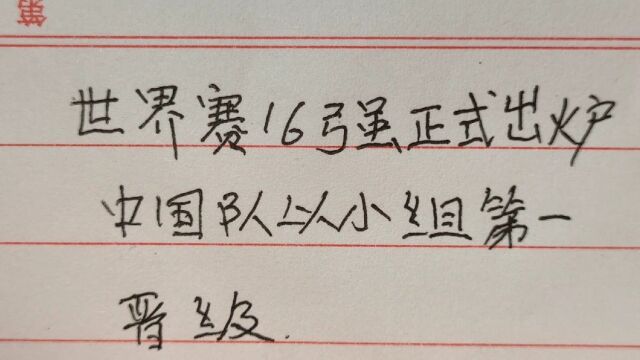 第
世界赛16强正式出炉
中国队以小组第一
晋级.